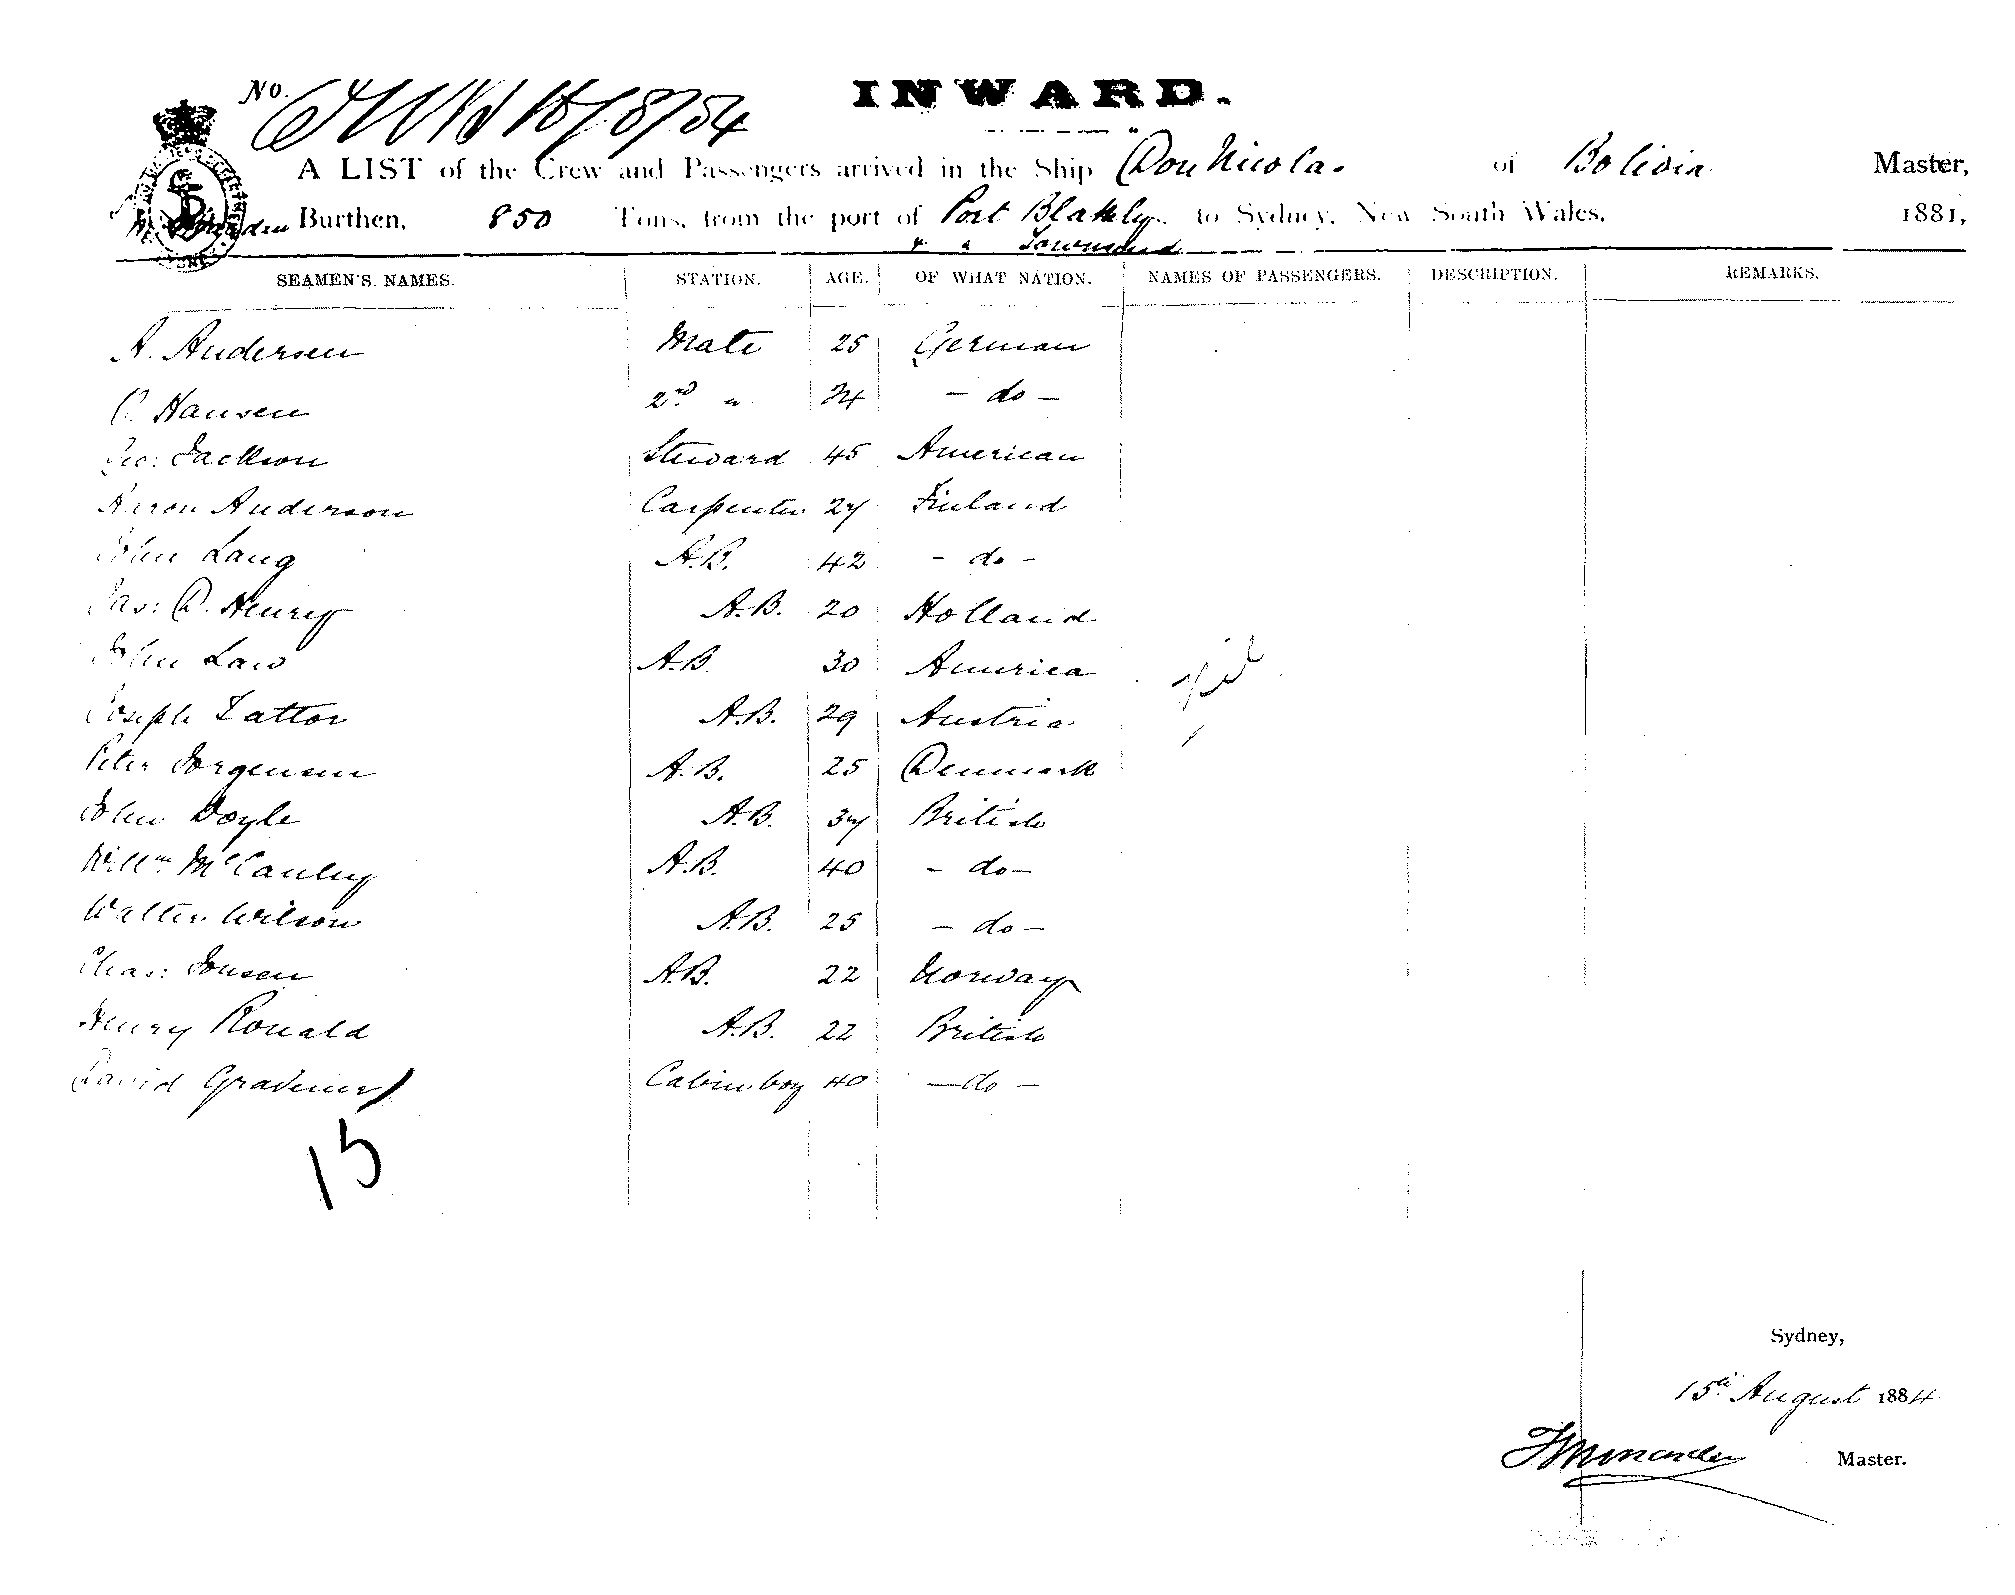 INWARD.
No.
A LIST of the Crew and Passengers arrived in the Ship Don Nicolas of Bolivia Master,
Burthen, 850 Tons, from the port of Port Blakely to Sydney, New South Wales, 1881,
Townsend
SEAMEN'S NAMES. STATION. AGE. OF WHAT NATION. NAMES OF PASSENGERS. DESCRIPTION. REMARKS.
A. Andersen Mate 25 German
Hansen 2nd " 24 - do -
Geo: Jackson Steward 45 American
Aaron Anderson Carpenter 27 Finland
John Lang A.B. 42 - do -
Jas: D. Henry A.B. 20 Holland
John Law A.B. 30 America
Nil
Joseph Zattor A.B. 29 Austria
Peter Jorgensen A.B. 25 Denmark
John Doyle A.B. 37 British
Willm McCauley A.B. 40 - do -
Walter Wilson A.B. 25 - do -
Chas: Jonsen A.B. 22 Norway
Henry Ronald A.B. 22 British
David Cabin boy 40 - do -
15
Sydney,
15th August 1884
Master.